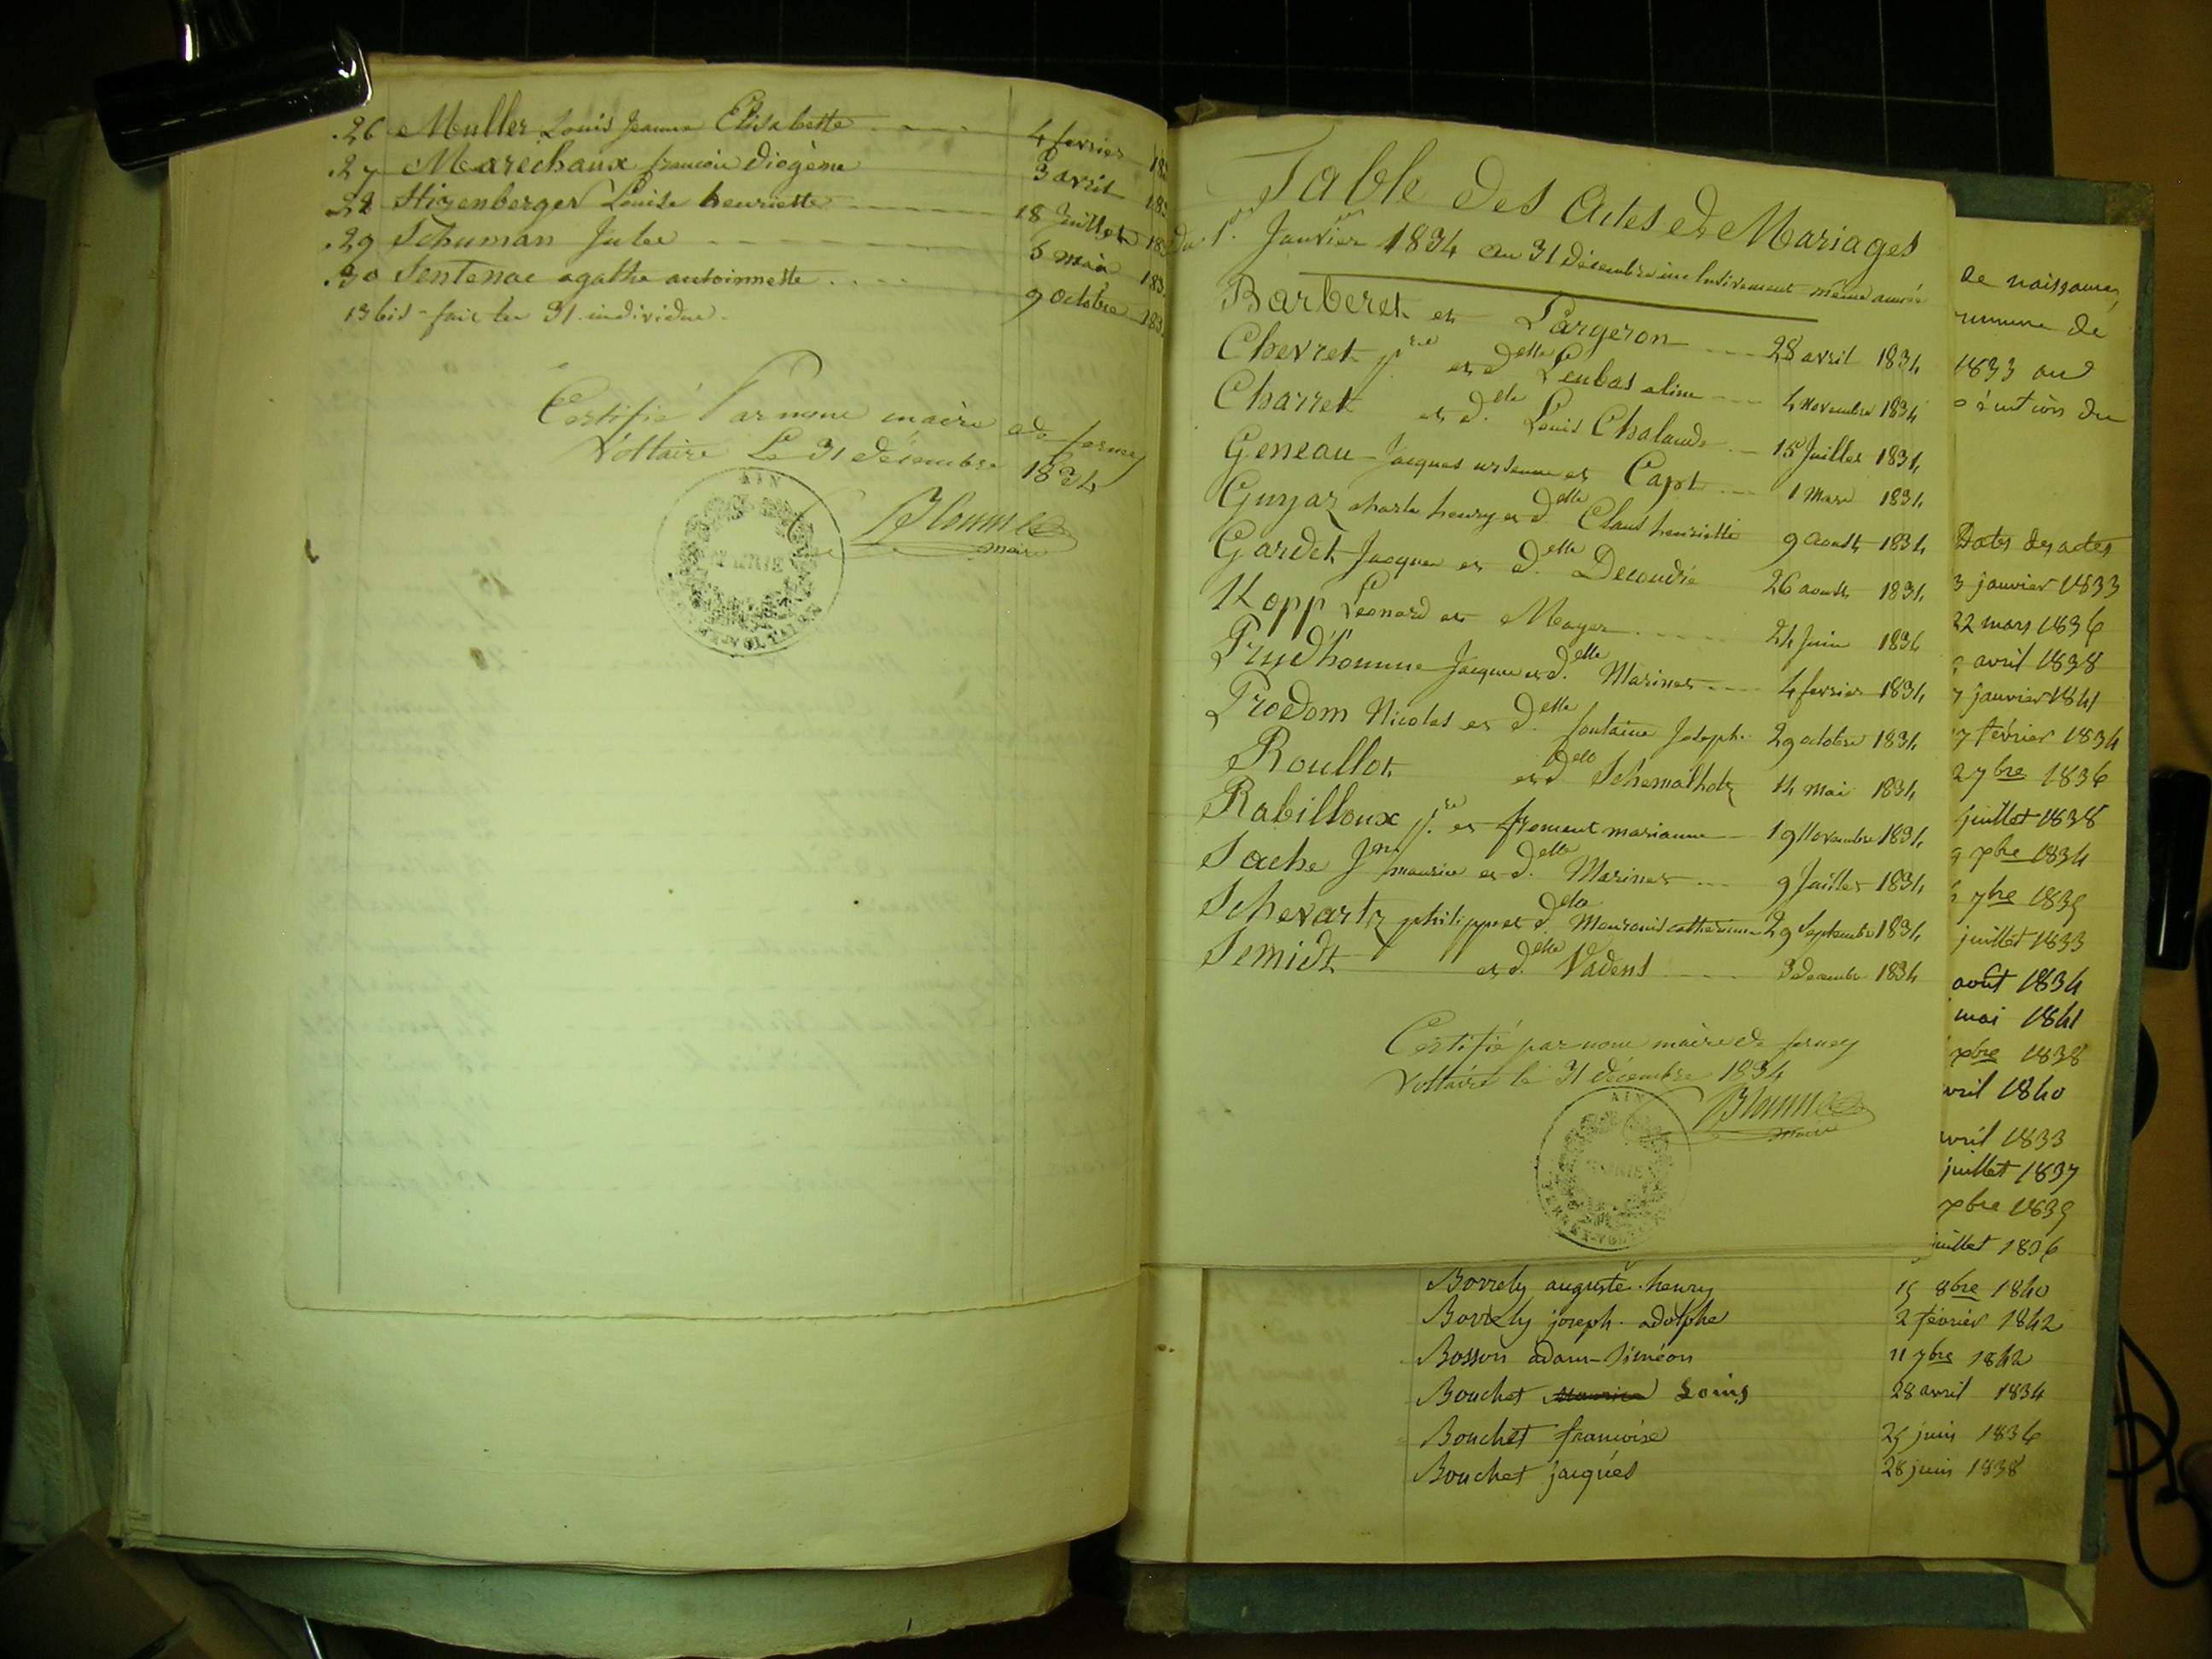 .26 Muller Louis Jeanne Elisabette 4 fevrier 183
.27 Maréchaux francois diogène 3 avril 183
.28 Stizenberger Louise henriette 18 Juillet 183
.29 Schuman Julie 5 mai 183
.30 Sentenac agathe antoinnette 9 octobre 183
13 bis - fait les 31 individus.
Certifié Par nous maire de ferney
Voltaire Le 31 décembre 1834
AIN
MAIRIE
maire
Table des actes de Mariages
du 1er Janvier 1834 au 31 décembre inclusivement même année
Barberet et Pargeron 28 avril 1834
Chevret et delle Leubas aline 4 Novembre 1834
Charret et delle Louis Chalande 15 Juillet 1834
Geneau Jacques et Capt 1 Mars 1834
Guyaz charle henry et delle Claus henriette 9 aoust 1834
Gardet Jacques et delle 26 aoust 1834
Kopp Léonard et Mayer 24 Juin 1834
Prud'homme Jacque et delle Mariner 4 fevrier 1834
Prodom Nicolas et delle fontaine Joseph 29 octobre 1834
Roullot et delle Schemalholtz 14 mai 1834
Rabilloux et froment marianne 19 Novembre 1834
Sache Jn maurice et delle Mariner 9 Juillet 1834
Schevartz philippe et delle catherinne 29 Septembre 1834
Semidt et delle Vadens 3 decembre 1834
Certifié par nous maire de ferney
Voltaire le 31 décembre 1834
AIN
MAIRIE
maire
de naissances
mmune de
1833 au
Dates des actes
3 janvier 1833
22 mars 1836
avril 1838
7 janvier 1841
7 février 1834
2 7bre 1836
juillet 1838
9 xbre 1834
7bre 1835
juillet 1833
août 1834
mai 1841
xbre 1838
vril 1840
vril 1833
juillet 1837
xbre 1835
juillet 1836
Borrely auguste henry 15 8bre 1840
Borrely joseph adolphe 2 février 1842
Bosson adam-Siméon 11 7bre 1842
Bouchet Maurice Louis 28 avril 1834
Bouchet francoise 25 juin 1836
Bouchet jacques 28 juin 1838